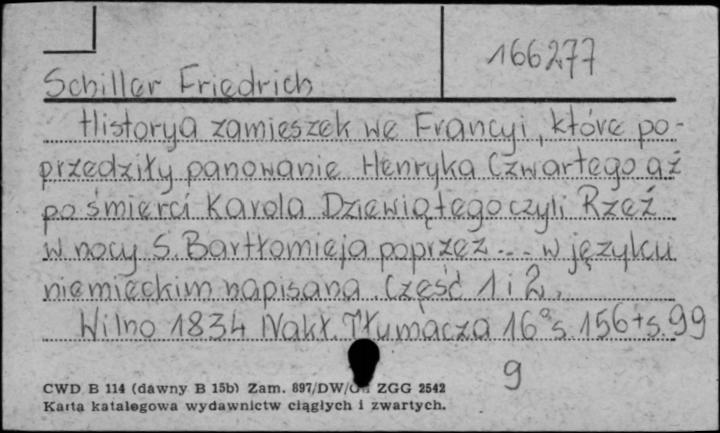 166277
Schiller Friedrich
Historya zamieszek we Francyi, które po-
przedziły panowanie Henryka Czwartego aż
po śmierci Karola Dziewiątego czyli Rzeź
w nocy S. Bartłomieja poprzez ... w języku
niemieckim napisana. Część 1 i 2.
Wilno 1834 Nakł. Tłumacza 16° s. 156+s. 99
9
CWD B 114 (dawny B 15b) Zam. 897/DW/ ZGG 2542
Karta katalogowa wydawnictw ciągłych i zwartych.